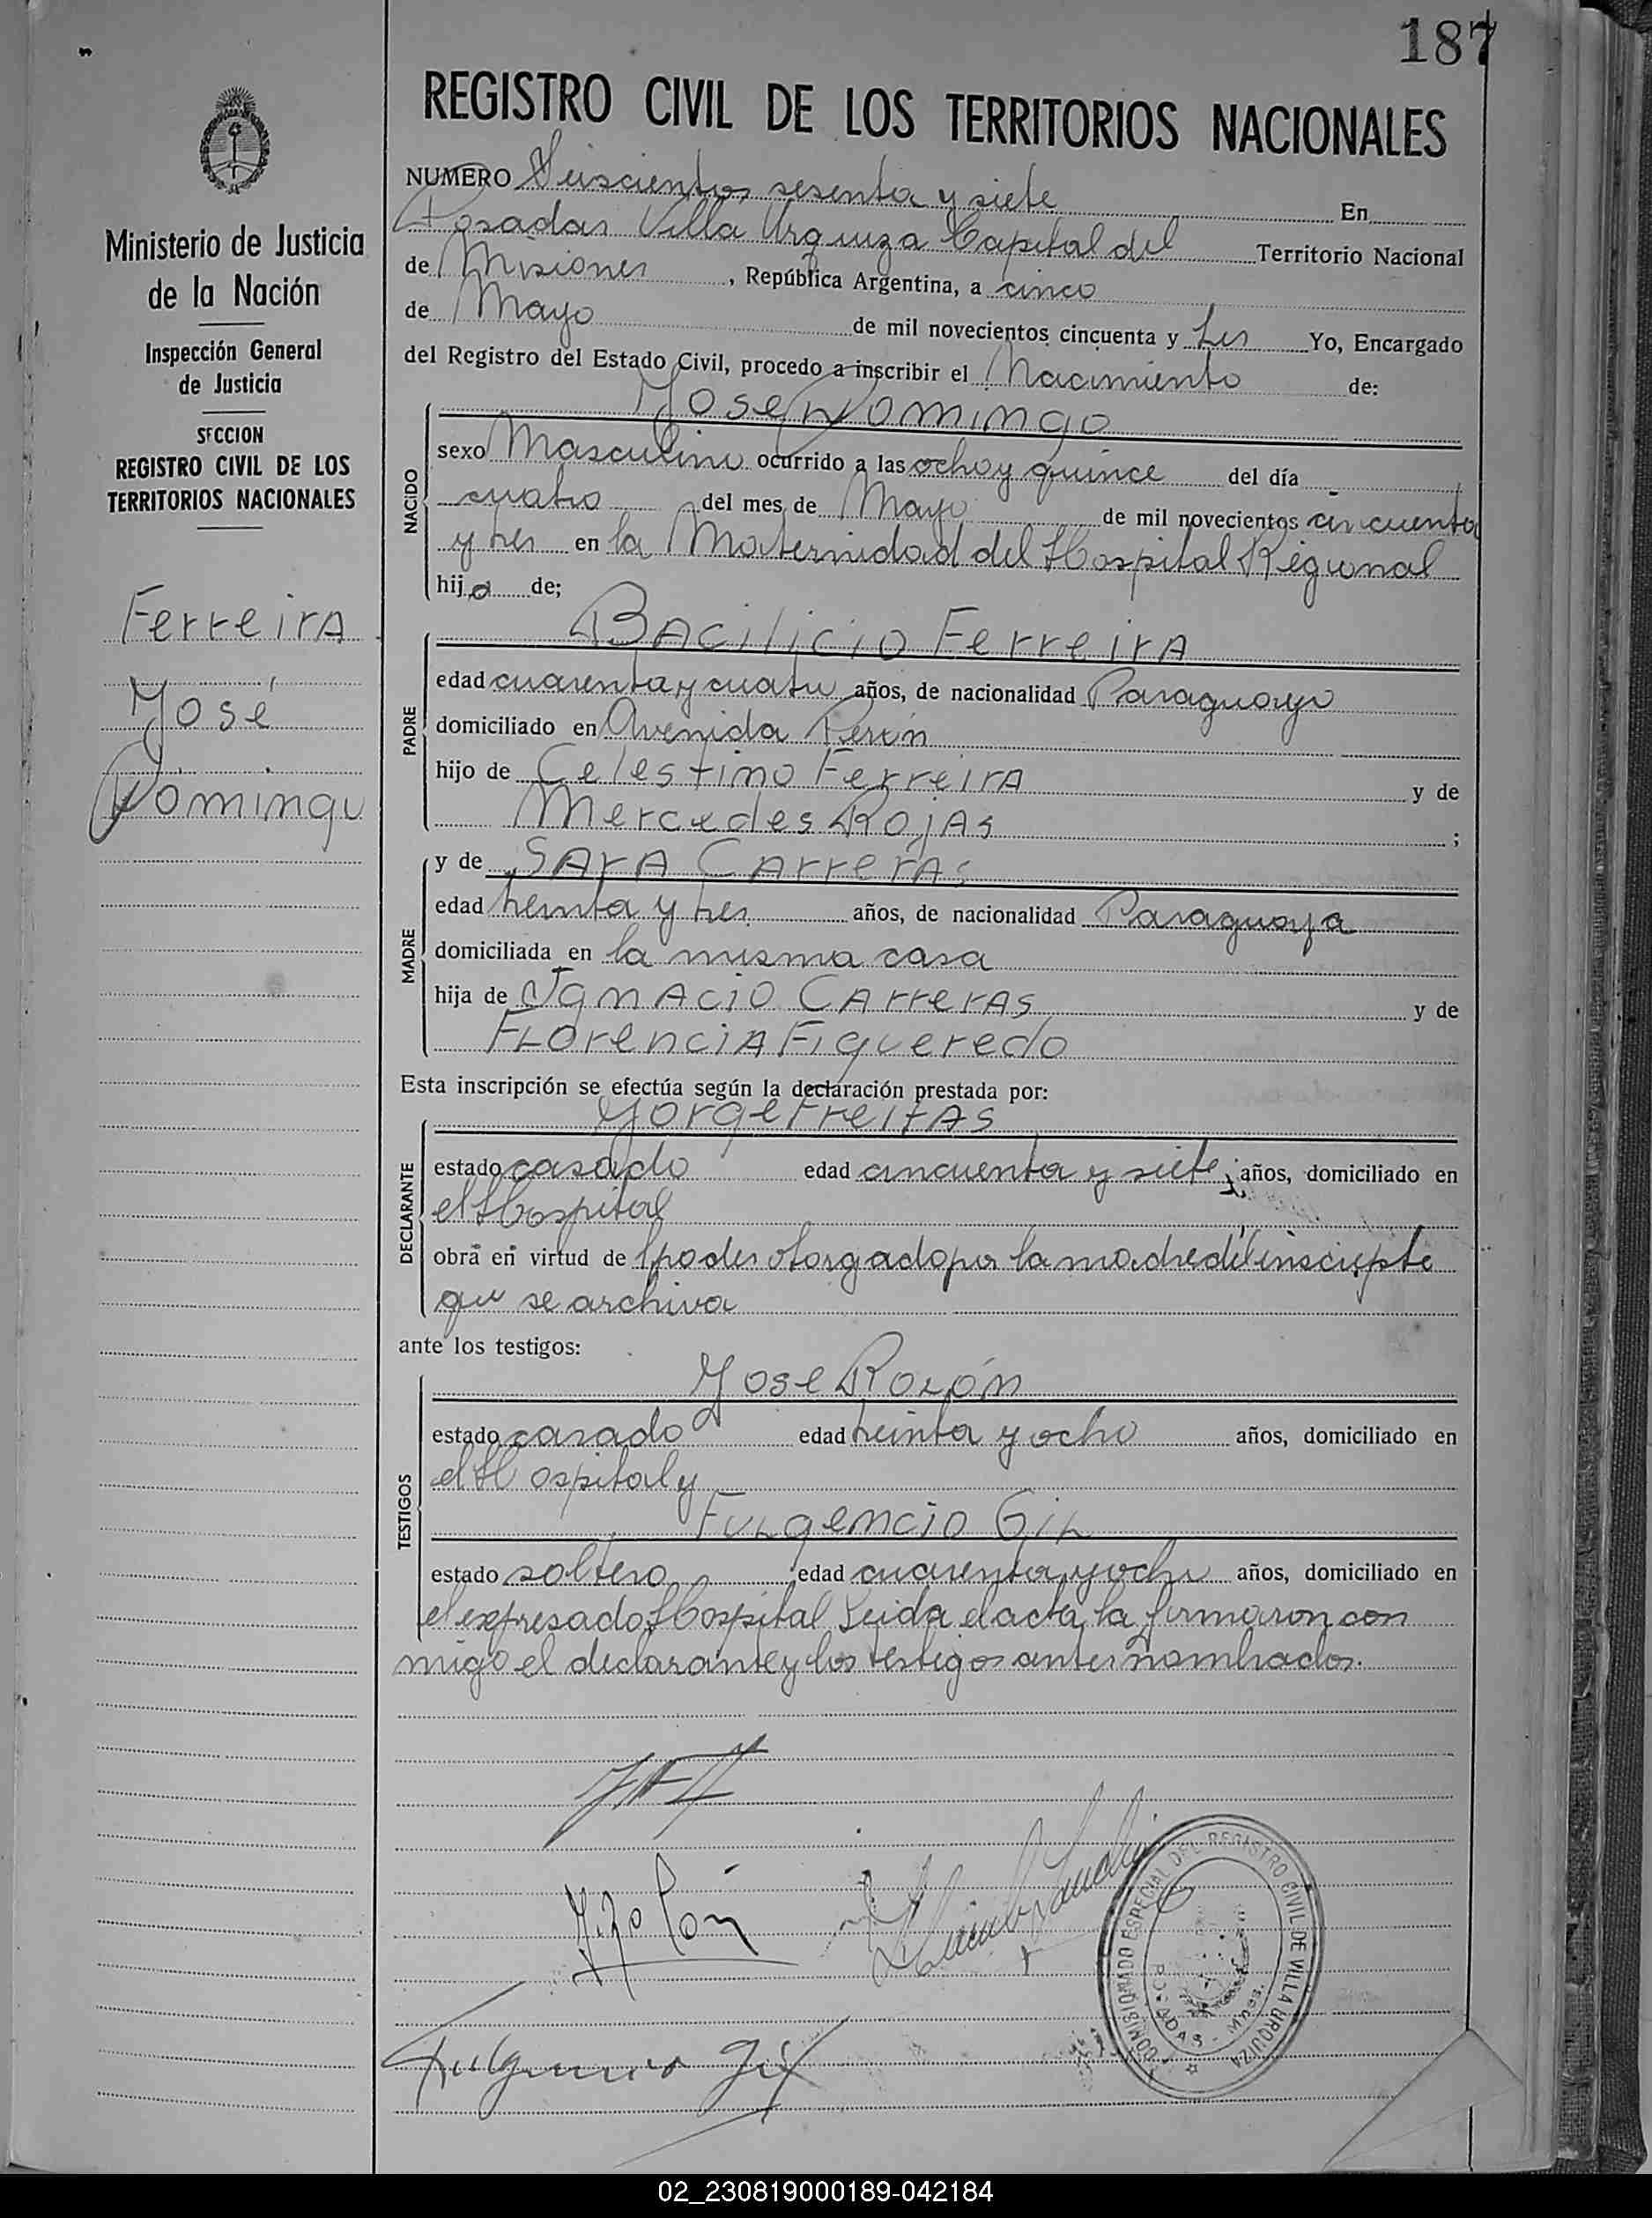 187
REGISTRO CIVIL DE LOS TERRITORIOS NACIONALES
Ministerio de Justicia
de la Nación
Inspección General
de Justicia
SECCION
REGISTRO CIVIL DE LOS
TERRITORIOS NACIONALES
Ferreira
José
Domingo
NUMERO Seiscientos sesenta y siete En
Posadas Villa Urquiza Capital del Territorio Nacional
de Misiones, República Argentina, a cinco
de Mayo de mil novecientos cincuenta y tres Yo, Encargado
del Registro del Estado Civil, procedo a inscribir el Nacimiento de:
Jose Domingo
NACIDO
sexo Masculino ocurrido a las ocho y quince del día
cuatro del mes de Mayo de mil novecientos cincuenta
y tres en la Maternidad del Hospital Regional
hijo de;
PADRE
Bacilicio Ferreira
edad cuarenta y cuatro años, de nacionalidad Paraguayo
domiciliado en Avenida Perón
hijo de Celestino Ferreira y de
Mercedes Rojas ;
MADRE
y de Sara Carreras
edad treinta y tres años, de nacionalidad Paraguaya
domiciliada en la misma casa
hija de Ignacio Carreras y de
Florencia Figueredo
Esta inscripción se efectúa según la declaración prestada por:
DECLARANTE
Jorge Freitas
estado casado edad cincuenta y siete años, domiciliado en
el Hospital
obra en virtud de poder otorgado por la madre del inscripto
que se archiva
ante los testigos:
TESTIGOS
Jose Rolón
estado casado edad treinta y ocho años, domiciliado en
el Hospital y
Fulgencio Gil
estado soltero edad cuarenta y ocho años, domiciliado en
el expresado Hospital Leida el acta, la firmaron con
migo el declarante y los testigos antes nombrados.
Fulgencio Gil
COMISIONADO ESPECIAL DEL REGISTRO CIVIL DE VILLA URQUIZA
POSADAS - Mnes.
02_230819000189-042184